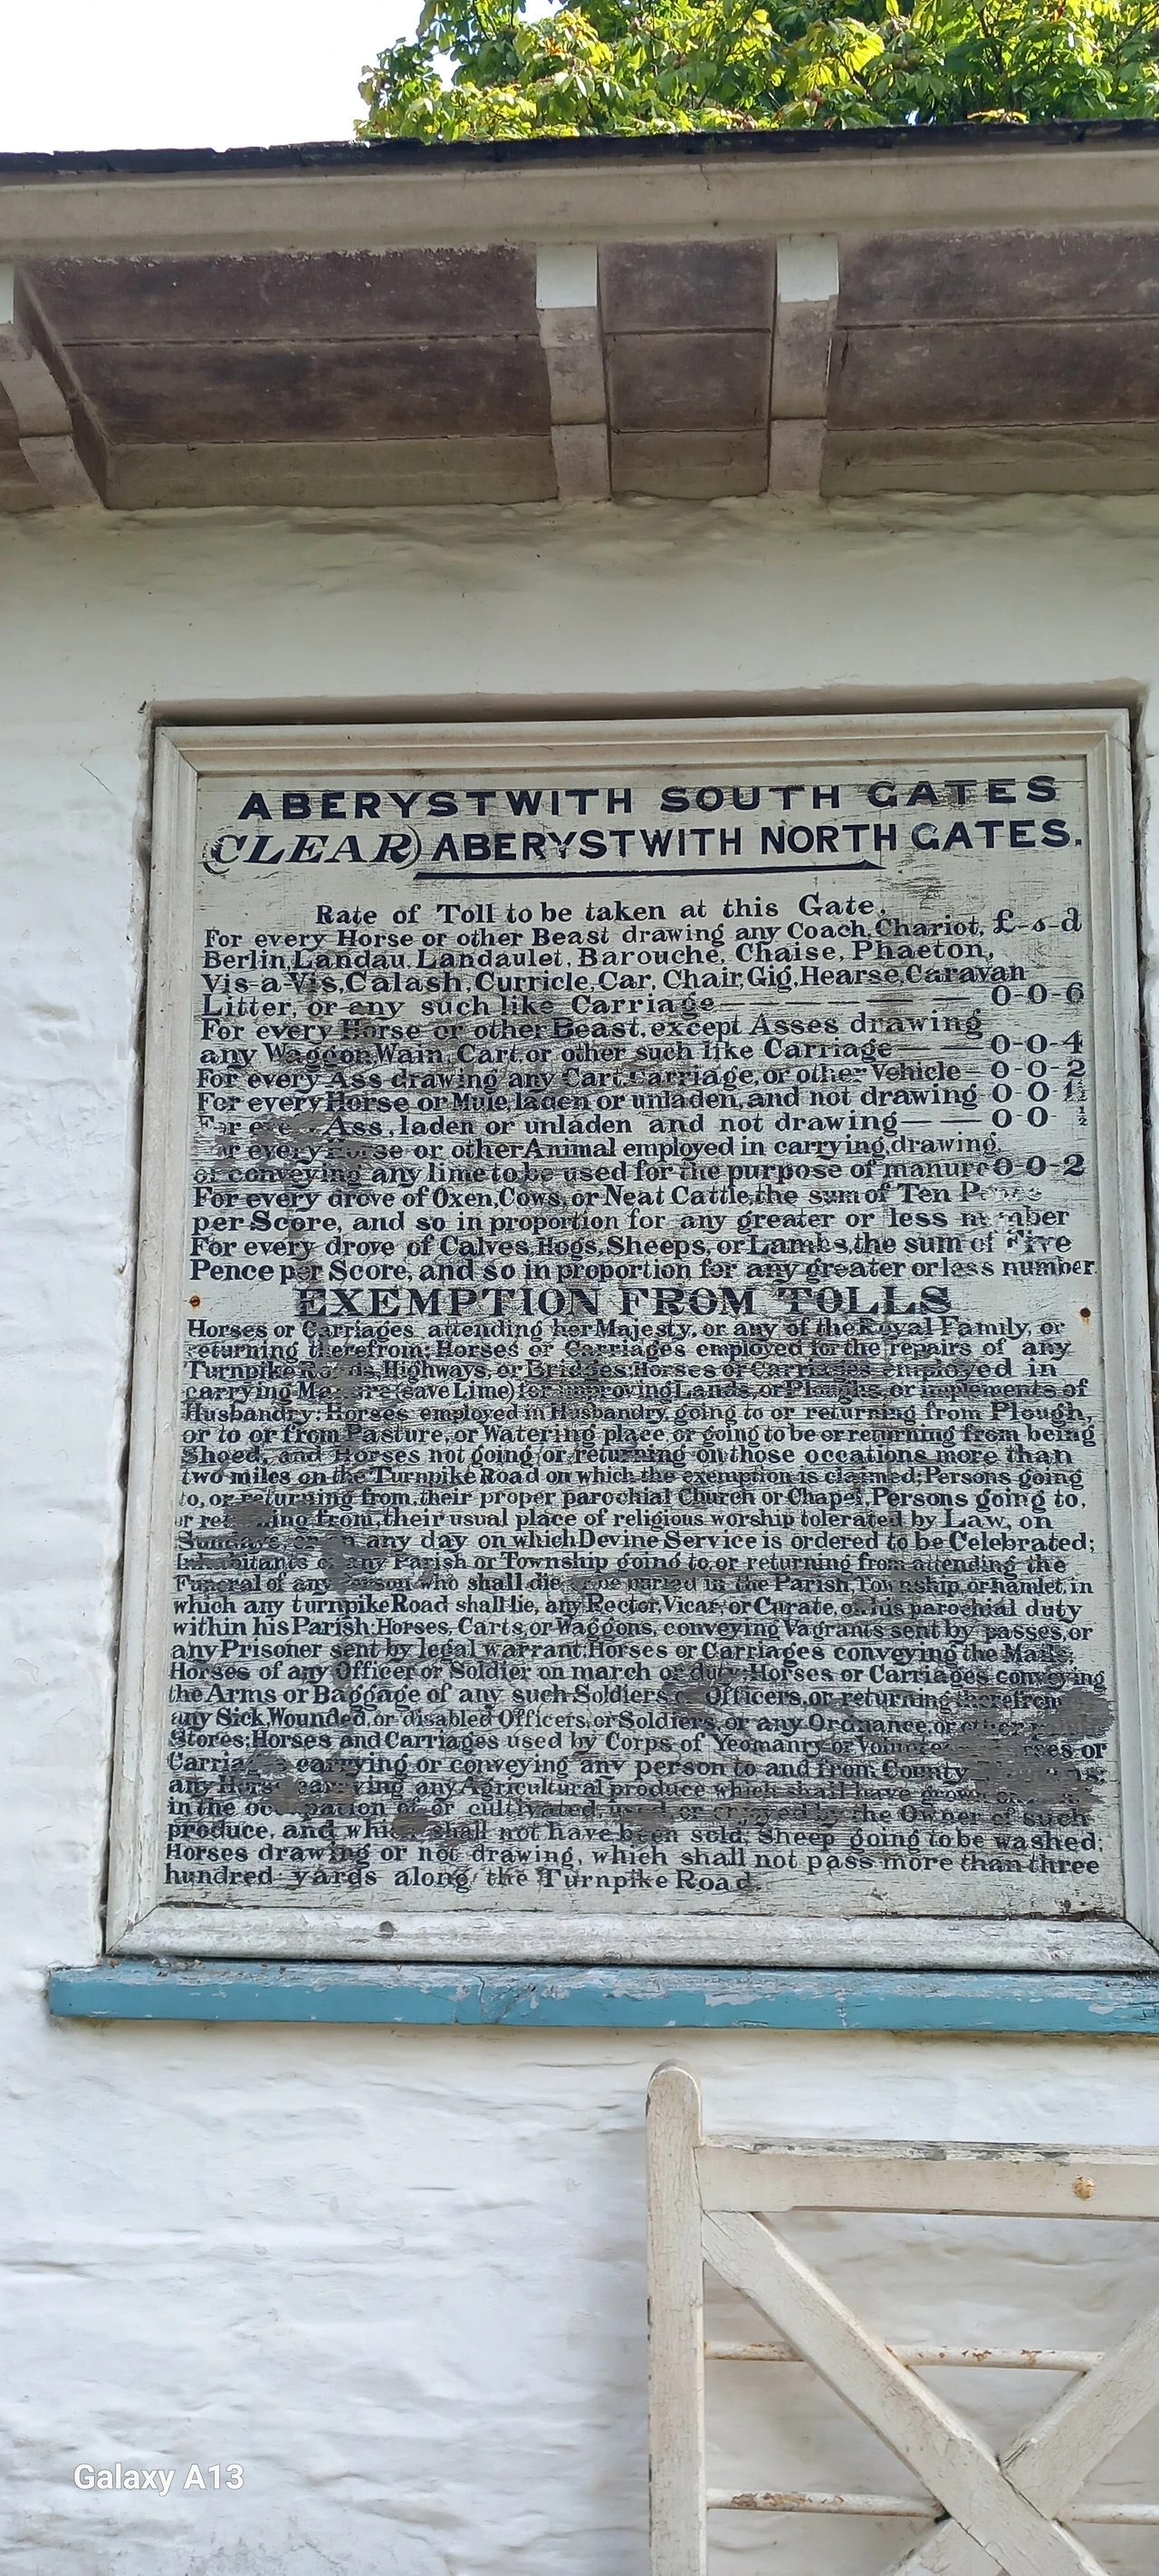 ABERYSTWITH SOUTH GATES
(CLEAR) ABERYSTWITH NORTH GATES.
Rate of Toll to be taken at this Gate.
For every Horse or other Beast drawing any Coach, Chariot, £-s-d
Berlin, Landau, Landaulet, Barouche, Chaise, Phaeton,
Vis-a-Vis, Calash, Curricle, Car, Chair, Gig, Hearse, Caravan
Litter, or any such like Carriage — — — — — 0-0-6
For every Horse or other Beast, except Asses drawing
any Waggon, Wain, Cart, or other such like Carriage — — 0-0-4
For every Ass drawing any Cart, Carriage, or other Vehicle — 0-0-2
For every Horse or Mule, laden or unladen, and not drawing 0-0 1½
Ass, laden or unladen and not drawing — — 0 0 ½
or every or other Animal employed in carrying, drawing,
or conveying any lime to be used for the purpose of manure 0-0-2
For every drove of Oxen, Cows, or Neat Cattle, the sum of Ten
per Score, and so in proportion for any greater or less number
For every drove of Calves, Hogs, Sheeps, or Lambs, the sum of Five
Pence per Score, and so in proportion for any greater or less number.
EXEMPTION FROM TOLLS
Horses or Carriages attending her Majesty, or any of the Royal Family, or
returning therefrom; Horses or Carriages employed for the repairs of any
Turnpike Roads, Highways, or Bridges: Horses or Carriages employed in
carrying (save Lime) for improving Lands, or Ploughs, or implements of
Husbandry: Horses employed in Husbandry, going to or returning from Plough,
or to or from Pasture, or Watering place or going to be or returning from being
Shoed, and Horses not going or returning on those occations more than
two miles on the Turnpike Road on which the exemption is claimed; Persons going
to, or returning from, their proper parochial Church or Chapel, Persons going to,
or returning from, their usual place of religious worship tolerated by Law, on
Sundays, or on any day on which Devine Service is ordered to be Celebrated;
Inhabitants of any Parish or Township going to, or returning from attending the
Funeral of any Person who shall die, or be buried in the Parish, Township, or hamlet, in
which any turnpike Road shall lie, any Rector, Vicar, or Curate, on his parochial duty
within his Parish: Horses, Carts, or Waggons, conveying Vagrants sent by passes, or
any Prisoner sent by legal warrant: Horses or Carriages conveying the Mails;
Horses of any Officer or Soldier on march or duty: Horses or Carriages conveying
the Arms or Baggage of any such Soldiers, or Officers, or returning therefrom
any Sick, Wounded, or disabled Officers, or Soldiers, or any Ordnance, or other
Stores: Horses and Carriages used by Corps of Yeomanry or or
carrying or conveying any person to and from County
any Horse carrying any Agricultural produce which shall have grown
in the occupation of or cultivated, used, or enjoyed by the Owner of such
produce, and which shall not have been sold; Sheep going to be washed;
Horses drawing or not drawing, which shall not pass more than three
hundred yards along the Turnpike Road.
Galaxy A13